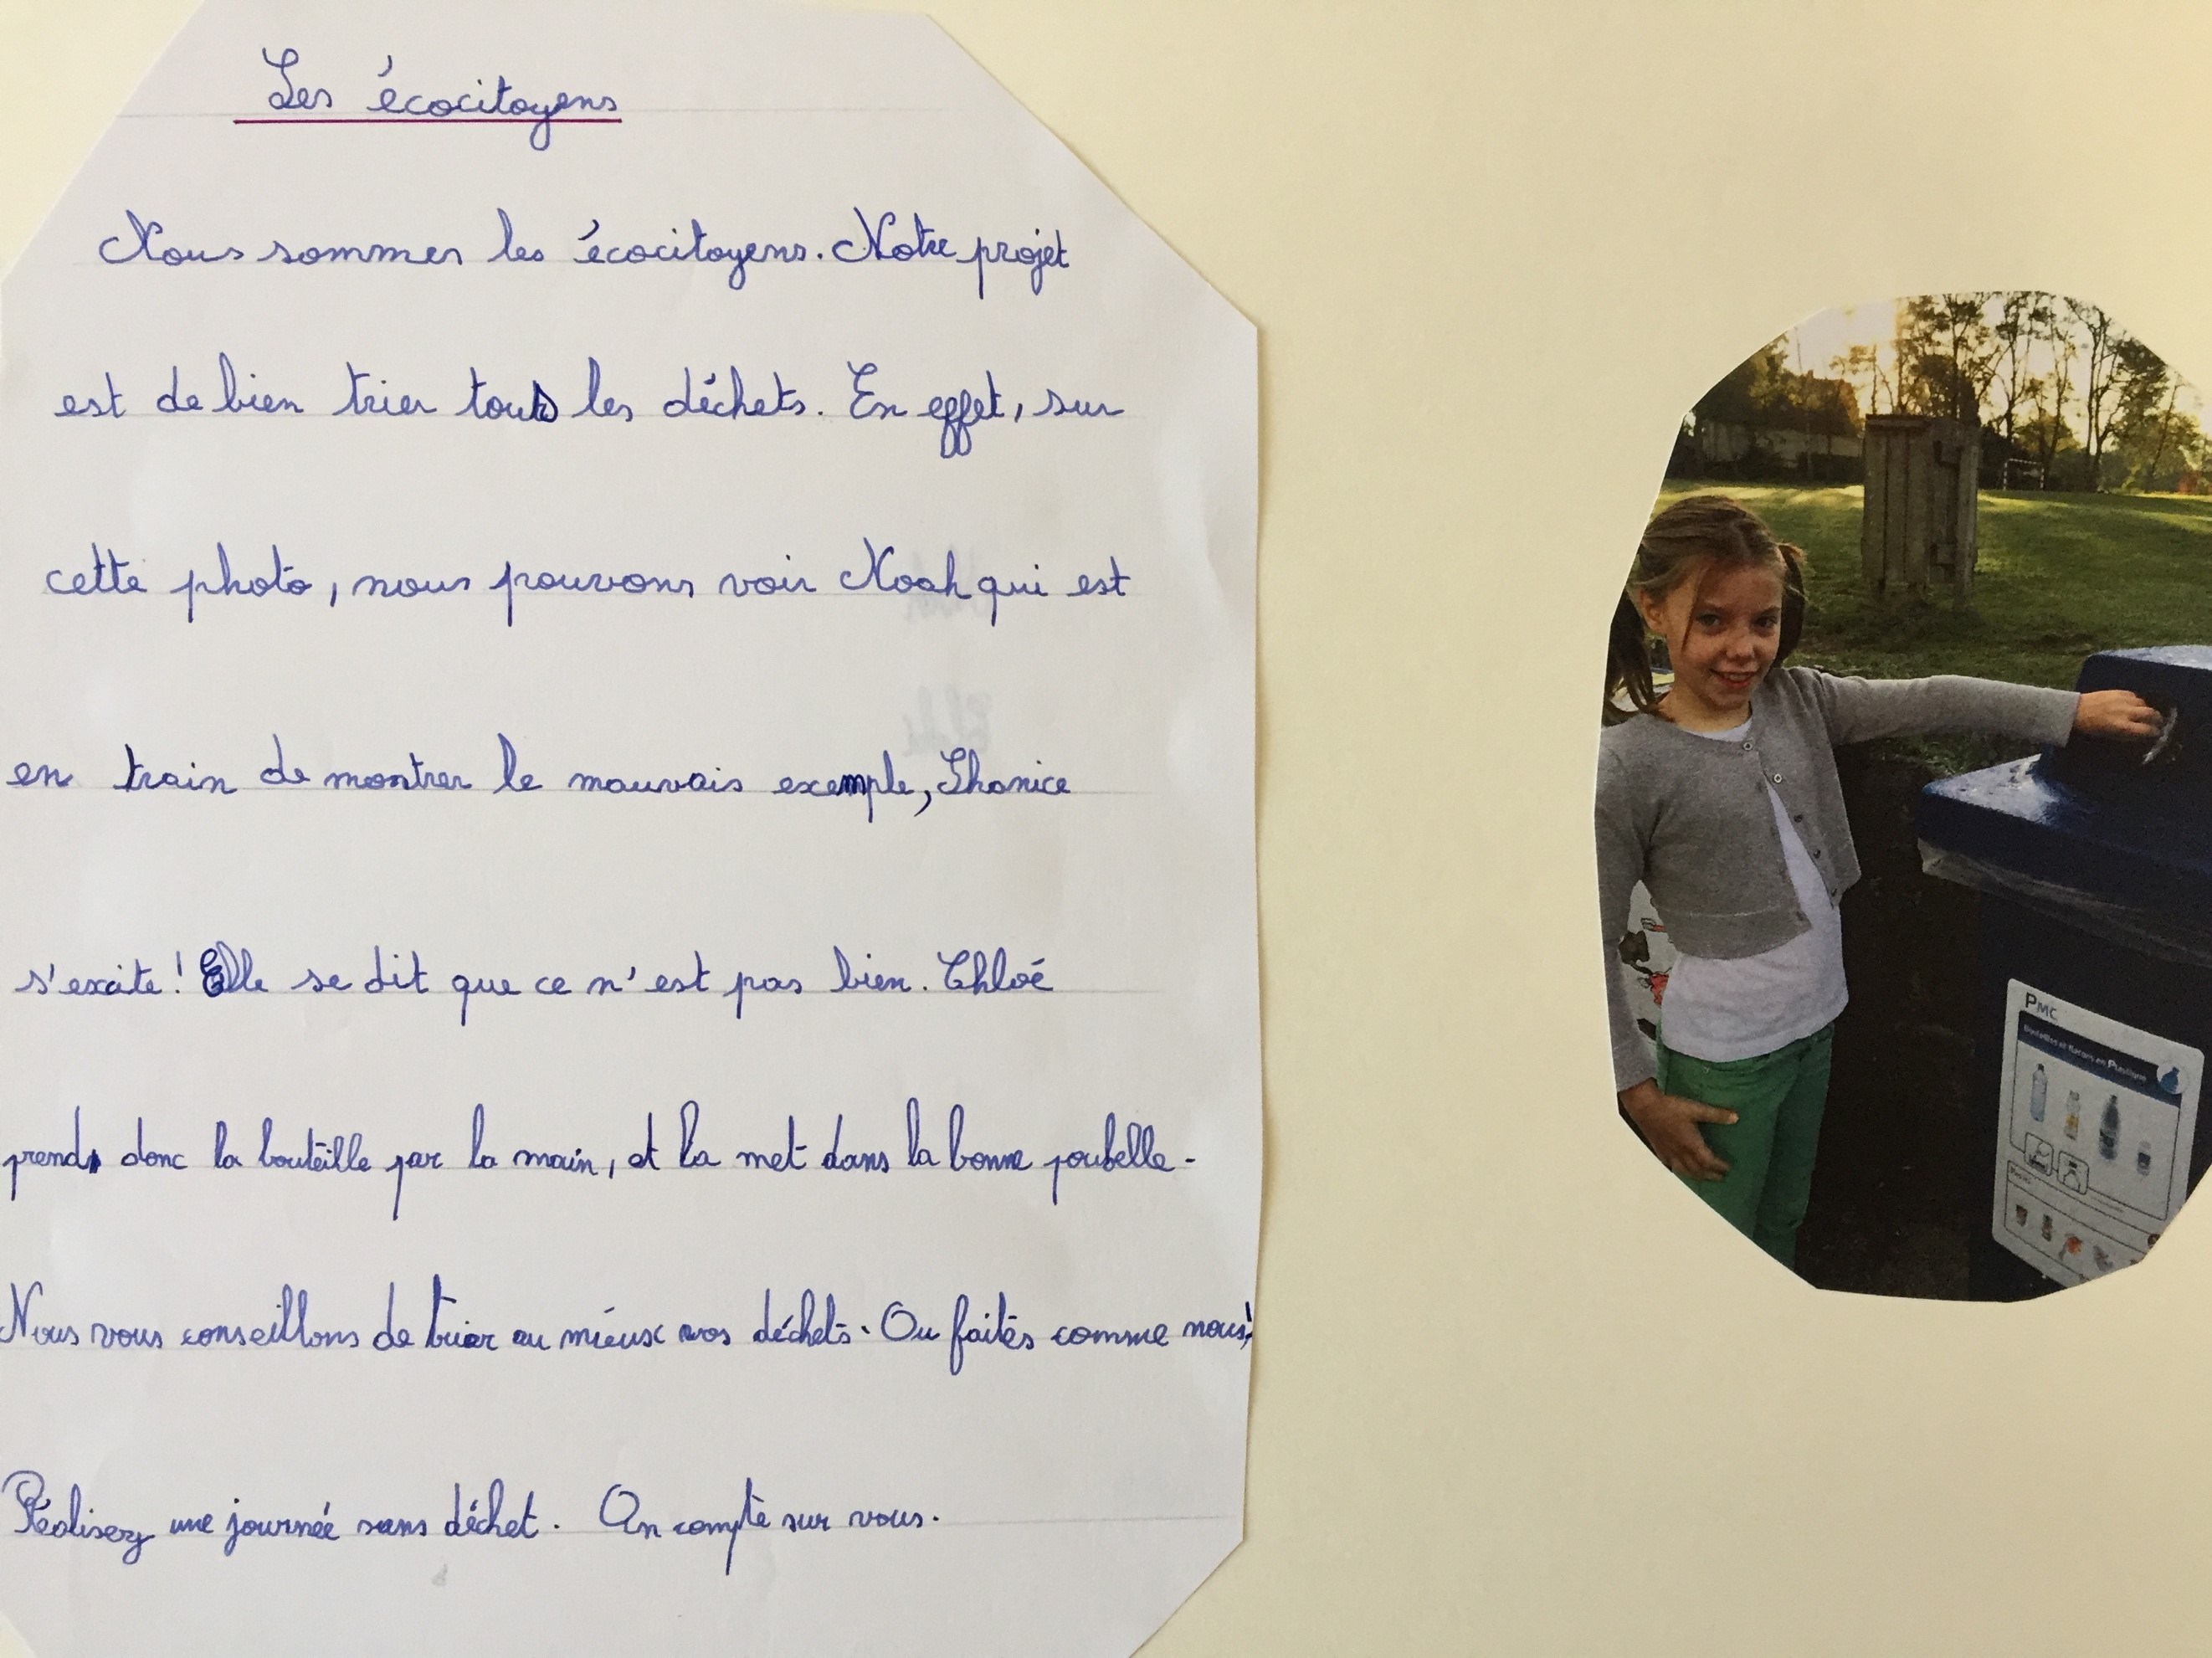 Les écocitoyens
Nous sommes les écocitoyens. Notre projet
est de bien trier tous les déchets. En effet, sur
cette photo, nous pouvons voir Noah qui est
en train de montrer le mauvais exemple, Shanice
s'excite ! Elle se dit que ce n'est pas bien. Chloé
prends donc la bouteille par la main, et la met dans la bonne poubelle.
Nous vous conseillons de trier au mieux vos déchets. Ou faites comme nous!
Réalisez une journée sans déchet. On compte sur vous.
PMC
Bouteilles et flacons en Plastique